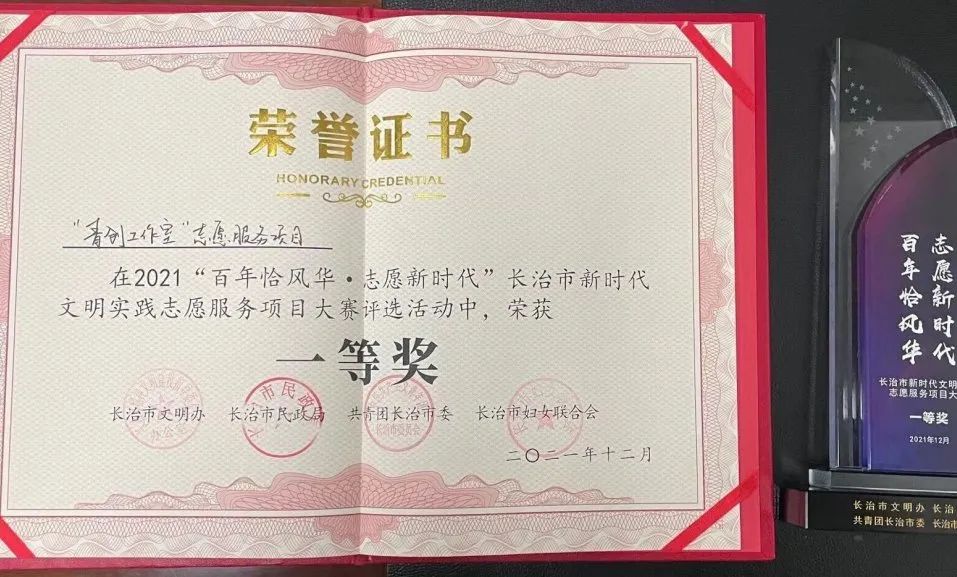 荣誉证书
HONORARY CREDENTIAL
“青创工作室”志愿服务项目
在2021“百年恰风华·志愿新时代”长治市新时代
文明实践志愿服务项目大赛评选活动中，荣获
一等奖
长治市文明办 长治市民政局 共青团长治市委 长治市妇女联合会
二〇二一年十二月
百年恰风华
志愿新时代
长治市新时代文明
志愿服务项目大
一等奖
2021年12月
长治市文明办 长治
共青团长治市委 长治市